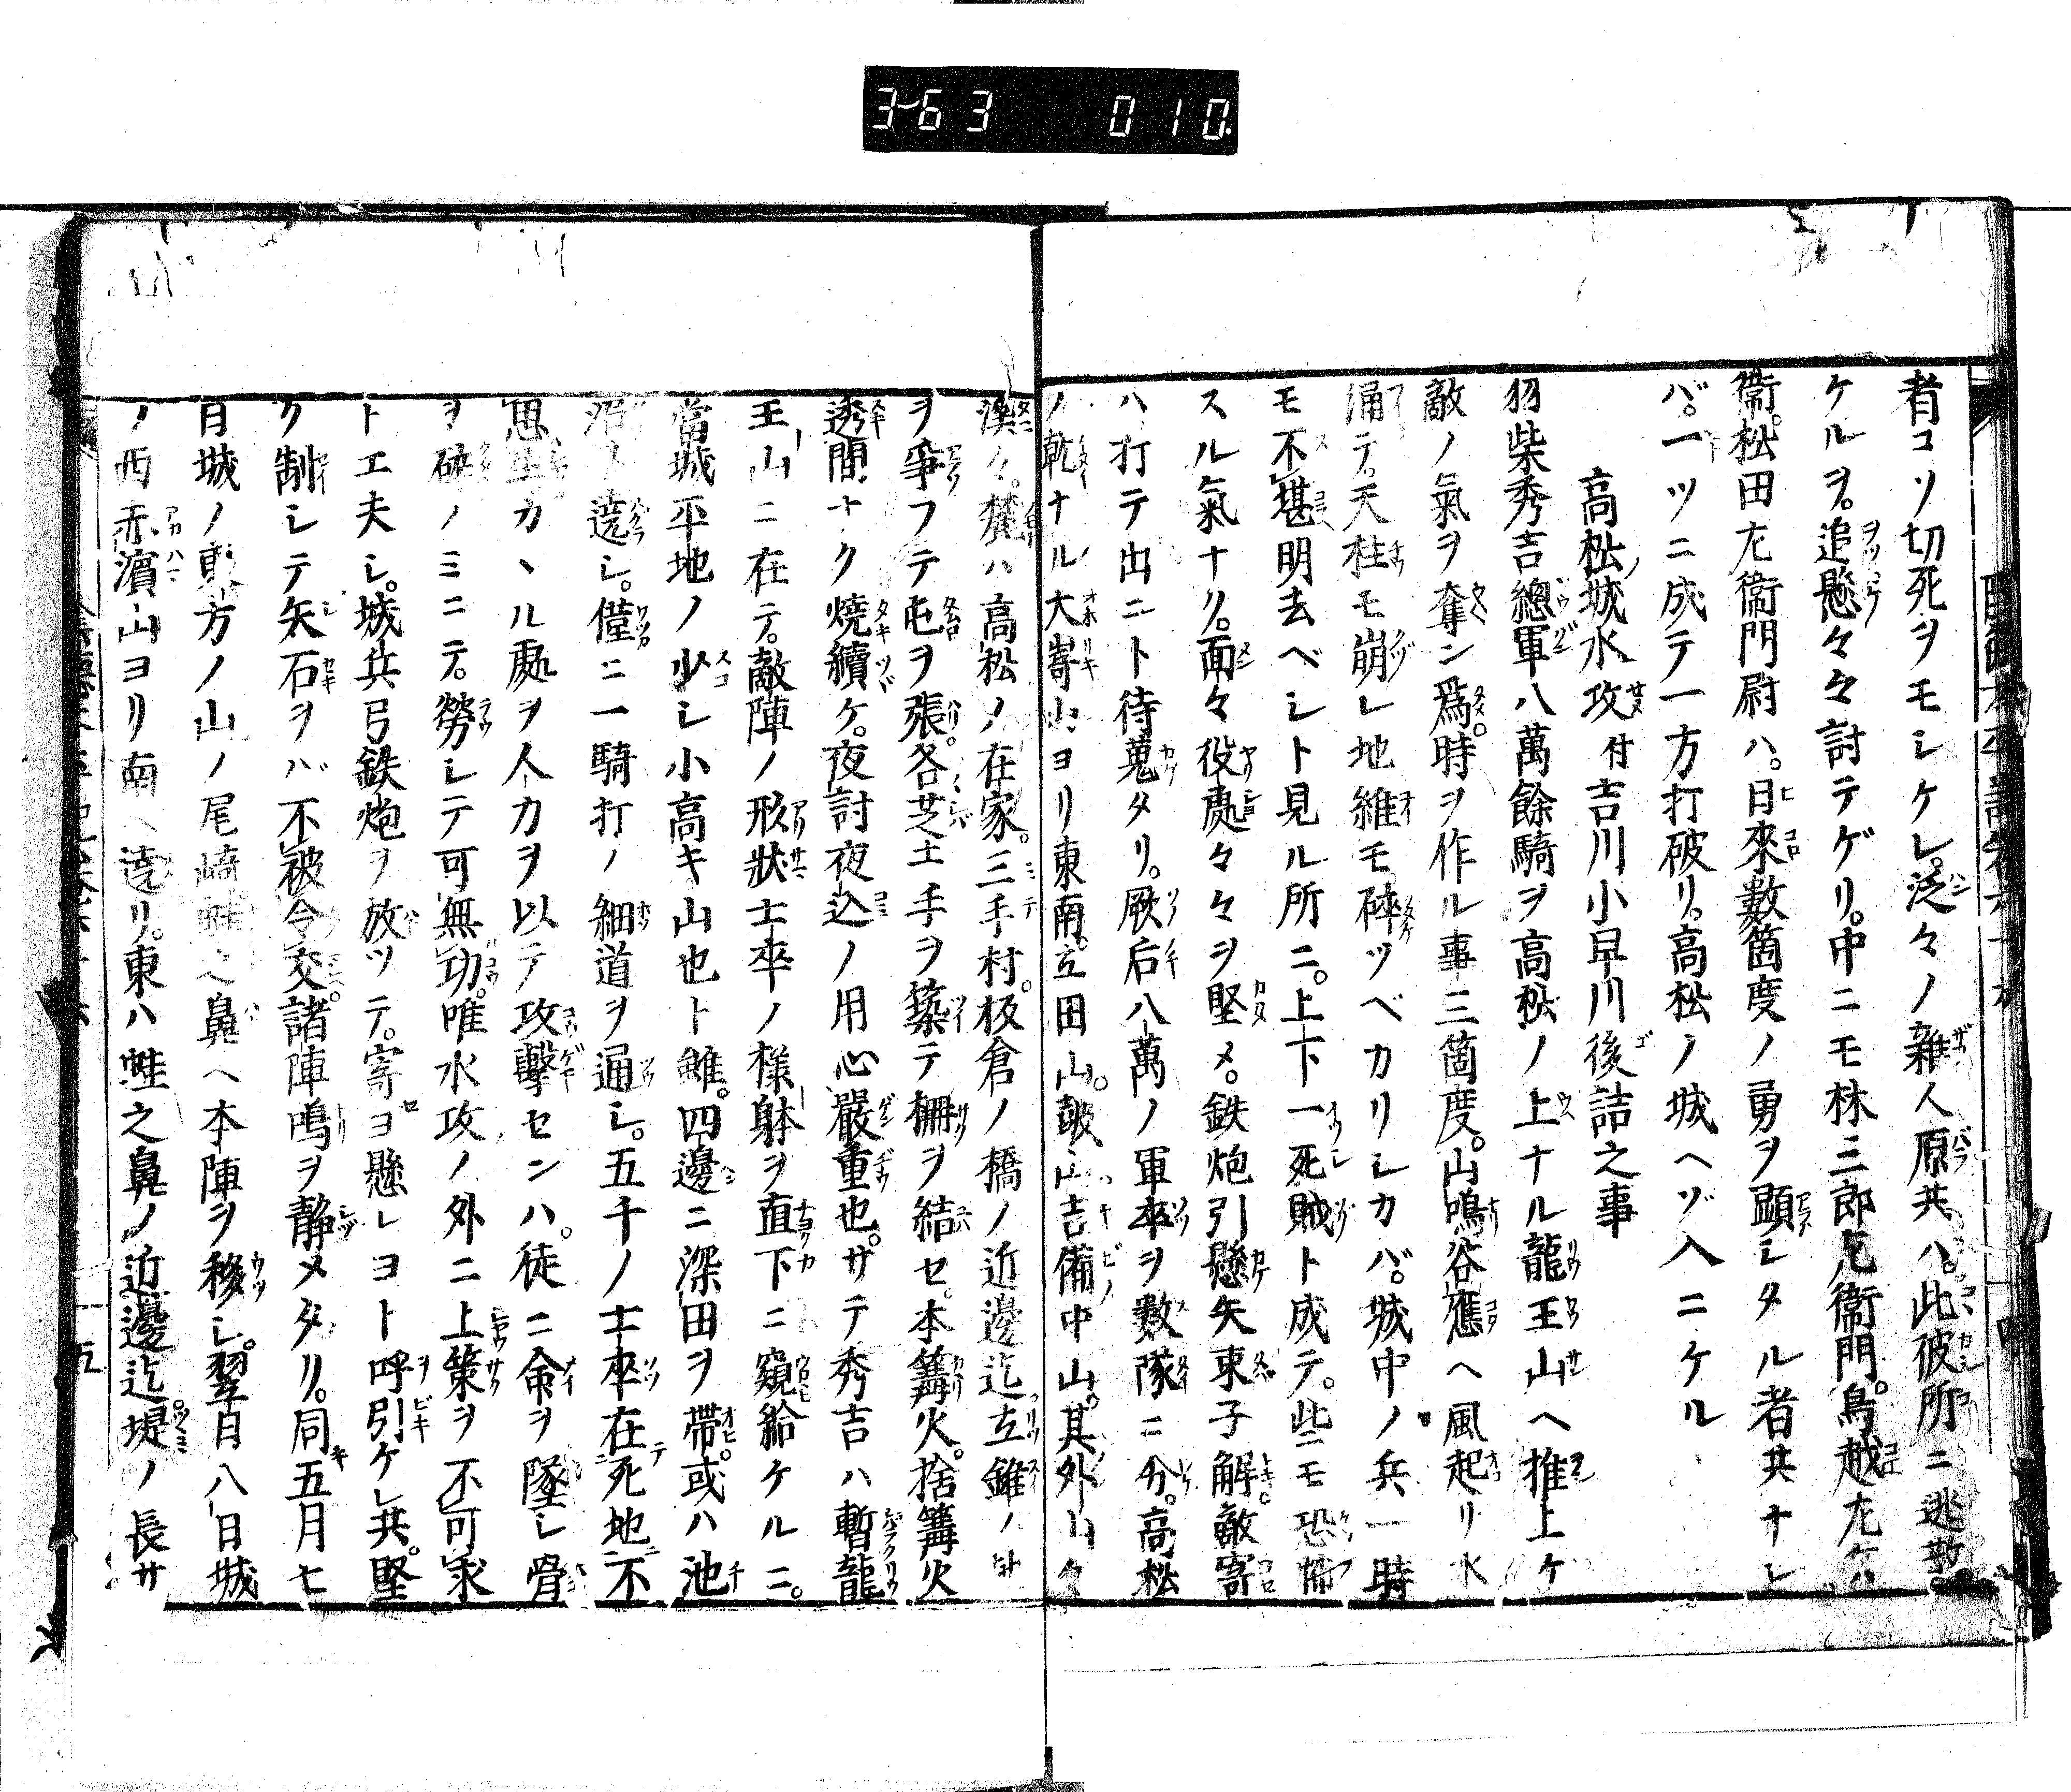 3-63 010
者コソ切死ヲモシケレ。泛々ノ雜人原共ハ。此彼所ニ逃散
ケルヲ。追懸々々討テゲリ。中ニモ林三郎左衞門。鳥越左兵
衞。松田左衞門尉ハ。日來數箇度ノ勇ヲ顕シタル者共ナレ
バ。一ツニ成テ一方打破リ。高松ノ城ヘゾ入ニケル
高松城水攻付吉川小早川後詰之事
羽柴秀吉總軍八萬餘騎ヲ高松ノ上ナル龍王山ヘ推上ケ
敵ノ氣ヲ奪ン爲。時ヲ作ル事三箇度。山鳴谷應ヘ風起リ水
涌テ。天柱モ崩レ地維モ碎ツベカリシカバ。城中ノ兵一時
モ不堪明去ベシト見ル所ニ。上下一死賊ト成テ。些ニモ恐怖
スル氣ナリ。面々役處々々ヲ堅メ。鉄炮引懸矢束子解。敵寄
ハ打テ出ニト待蒐タリ。厥后八萬ノ軍卒ヲ數隊ニ分。高松
ノ乾ナル大嵜山ヨリ東南。立田山。皷山吉備中山。其外山々
溪々。麓ハ高松ノ在家。三手村。板倉ノ橋ノ近邊迄立錐ノ地
ヲ爭フテ屯ヲ張。各芝土手ヲ築テ柵ヲ結セ。本篝火。捨篝火
透間ナク燒續ケ。夜討夜込ノ用心嚴重也。サテ秀吉ハ暫龍
王山ニ在テ。敵陣ノ形狀士卒ノ樣躰ヲ直下ニ窺給ケルニ。
當城平地ノ少シ小高キ山也ト雖。四邊ニ深田ヲ帶。或ハ池
沼ト遶シ。僅ニ一騎打ノ細道ヲ通シ。五千ノ士卒在死地不
思生カヽル處ヲ人カヲ以テ攻擊センハ。徒ニ命ヲ墜シ骨
ヲ碎ノミニテ。勞シテ可無功。唯水攻ノ外ニ上策ヲ不可求
ト工夫シ。城兵弓鉄炮ヲ放ツテ。寄ヨ懸レヨト呼引ケレ共。堅
ク制シテ矢石ヲハ不被令交。諸陣鳴ヲ静メタリ。同五月七
日城ノ東方ノ山ノ尾崎蛙之鼻ヘ本陣ヲ移シ。翌日八日城
ノ西赤濱山ヨリ南ヘ遶リ。東ハ蛙之鼻ノ近邊迄堤ノ長サ